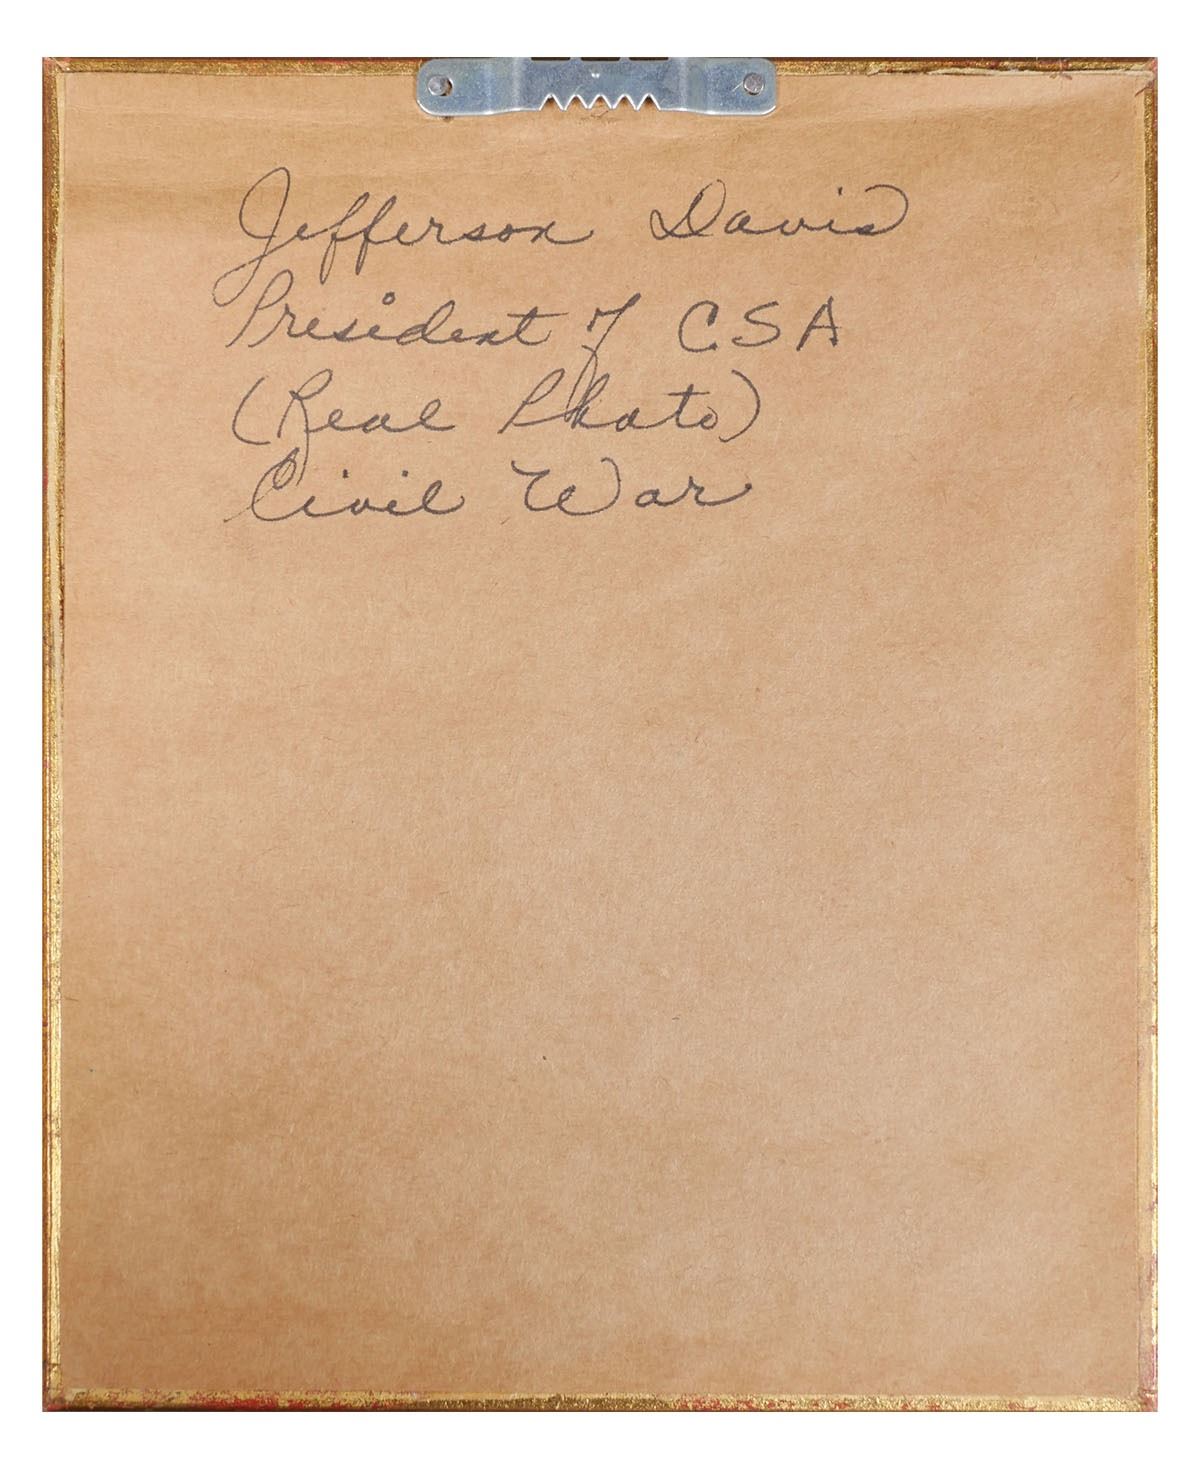 Jefferson Davis
President of CSA
(Real Photo)
Civil War